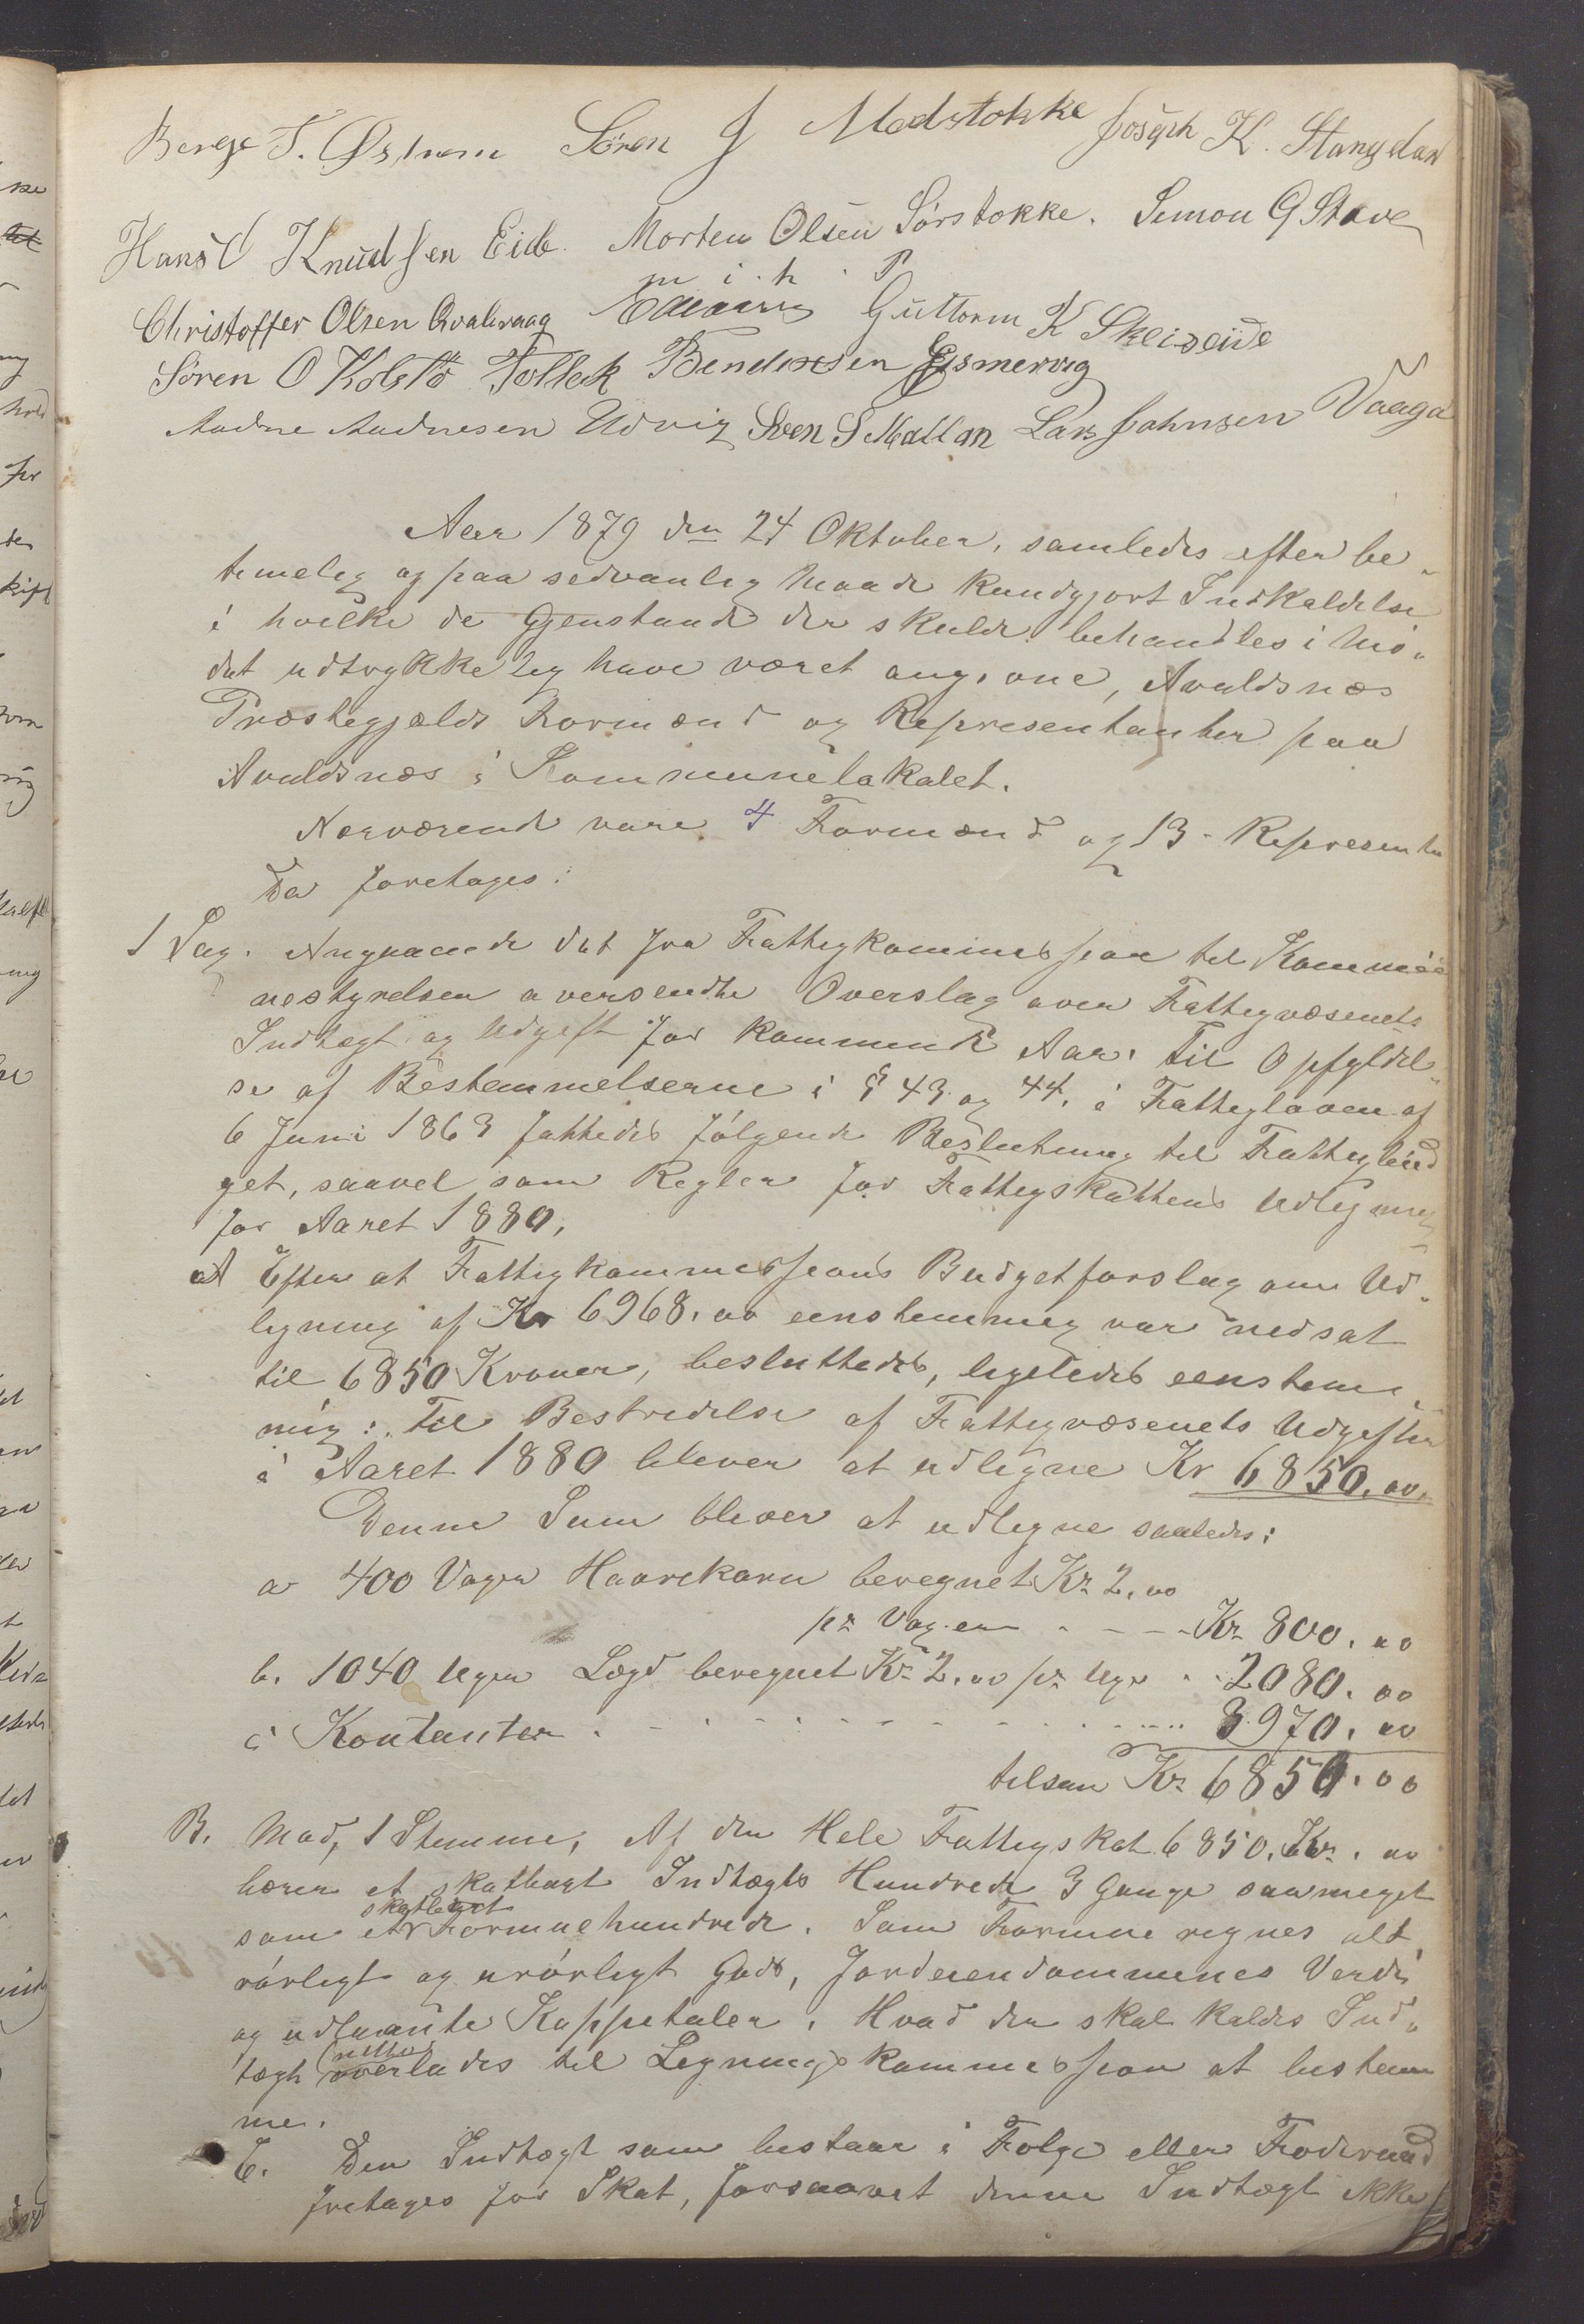 Børge T. Østrem Sören J Medstokke Joseph K. Stangeland
Hans O Knudsen Eide. Morten Olsen Sörstokke. Simon G Stave
Christoffer Olsen Qvalevaag m. i. h. P. Guttorm K Skeiseide
Sören O Kolstö Tollek Bendixsen
Audne Audnesen Udvig Sven S Mattan Lars Johnsen Vaaga
Aar 1879 den 24 Oktober, samledes efter be-
timelig og paa sedvanlig Maade kundgjort Indkaldelse
i hvilke de Gjenstande der skulde behandles i Mö-
det udtrykkelig have været angivne, Avaldsnæs
Præstegjælds Formænd og Representanter paa
Avaldsnæs i Kommunelokalet.
Nærværende vare 4 Formænd og 13 Representan
Da foretages:
1 Sag. Angaaende det fra Fattigkommissjon til Kommu
nestyrelsen oversendte Overslag over Fattigvæsenets
Indtægt og Udgift for kommende Aar. Til Opfyldel-
se af Bestemmelserne i § 43 og 44, i Fattigloven af
6 Juni 1863 fattedes fölgende Beslutning til Fattigbud
get, saavel som Regler for Fattigskattens Udligning
for Aaret 1880,
A Efter at Fattigkommissjons Budgetforslag om Ud-
ligning af Kr 6968.00 eenstemmig var nedsat
til 6850 Kroner, besluttedes, ligeledes eenstem-
mig: Til Bestridelse af Fattigvæsenets Udgifter
i Aaret 1880 bliver at udligne Kr 6850.00.
Denne Sum bliver at udligne saaledes:
a 400 Voger Haarekorn beregnet Kr 2.00
pr Vogen - - - - Kr 800.00
b. 1040 Uger Lægd beregnet Kr 2.00 pr Uge . . 2080.00
c Kontanter . . . . . . . . . . . . 3970.00
tilsam Kr 6850.00
B. Mod, 1 Stemme, Af den Hele Fattigskat 6850, Kr. 00
bærer et skatbart Indtægts Hundrede 3 Gange saameget
skatbart
som et Formuehundrede. Som Formue regnes alt
rörligt og urörligt Gods, Jordeiendommenes Verdi
og udlaante Kappetaler. Hvad der skal kaldes Ind-
(netto)
tægt overlades til Ligningskommissjon at bestem
me.
C. Den Indtægt som bestaar i Folge eller Foderaad
fretages for Skat, forsaavet denne Indtægt ikke